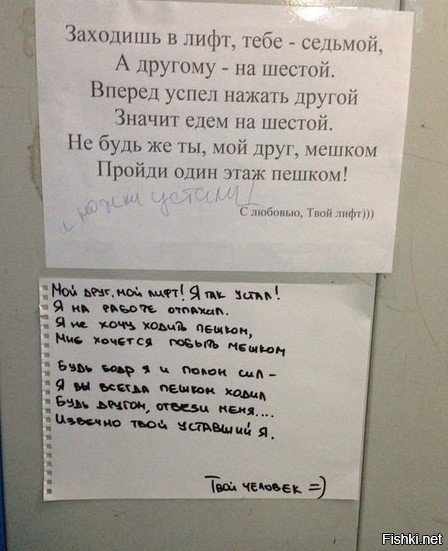 Заходишь в лифт, тебе - седьмой,
А другому - на шестой.
Вперед успел нажать другой
Значит едем на шестой.
Не будь же ты, мой друг, мешком
Пройди один этаж пешком!
ножки устали!
С любовью, Твой лифт)))
Мой друг, мой лифт! Я так устал!
Я на работе отпахал.
Я не хочу ходить пешком,
Мне хочется побыть мешком
Будь бодр я и полон сил -
Я бы всегда пешком ходил
Будь другом, отвези меня....
Извечно твой уставший я.
Твой человек =)
Fishki.net